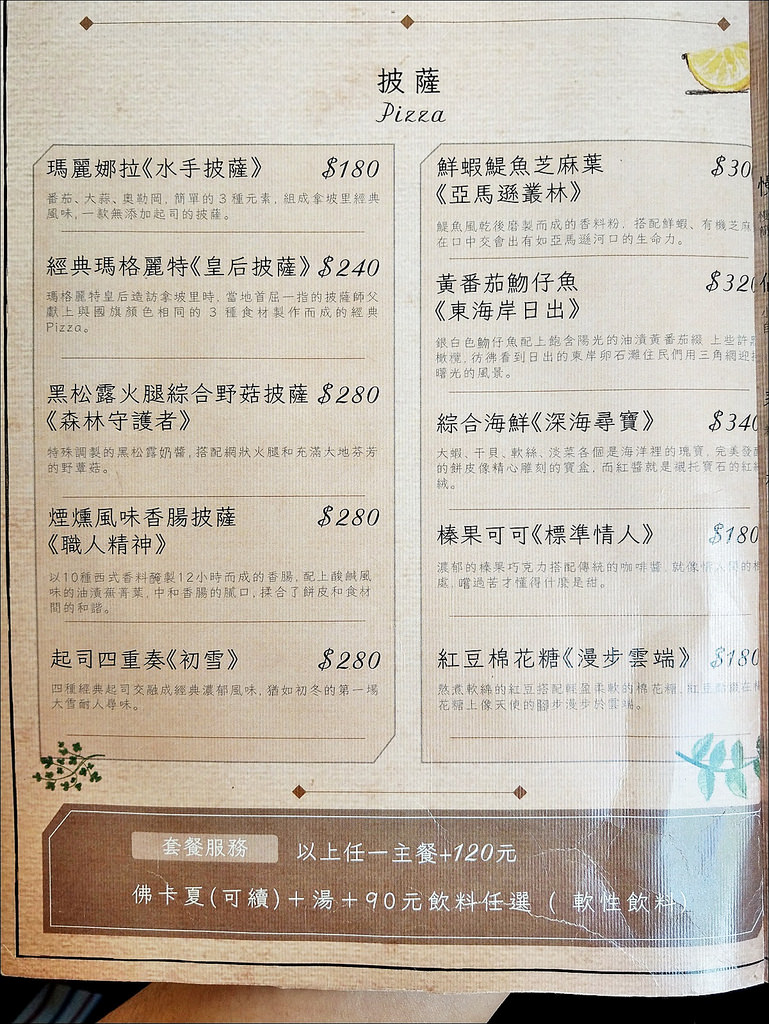 披薩
Pizza
瑪麗娜拉《水手披薩》 $180
番茄、大蒜、奧勒岡, 簡單的3種元素, 組成拿坡里經典
風味,一款無添加起司的披薩。
經典瑪格麗特《皇后披薩》 $240
瑪格麗特皇后造訪拿坡里時, 當地首屈一指的披薩師父
獻上與國旗顏色相同的 3 種食材製作而成的經典
Pizza。
黑松露火腿綜合野菇披薩 $280
《森林守護者》
特殊調製的黑松露奶醬,搭配網狀火腿和充滿大地芬芳
的野蕈菇。
煙燻風味香腸披薩 $280
《職人精神》
以10種西式香料醃製12小時而成的香腸,配上酸鹹風
味的油漬蕪菁葉,中和香腸的膩口,揉合了餅皮和食材
間的和諧。
起司四重奏《初雪》 $280
四種經典起司交融成經典濃郁風味, 猶如初冬的第一場
大雪耐人尋味。
鮮蝦鯷魚芝麻葉 $30
《亞馬遜叢林》
鯷魚風乾後磨製而成的香料粉, 搭配鮮蝦、有機芝麻
在口中交會出有如亞馬遜河口的生命力。
黃番茄魩仔魚 $320
《東海岸日出》
銀白色魩仔魚配上飽含陽光的油漬黃番茄綴 上些許
橄欖, 彷彿看到日出的東岸卵石灘住民們用三角網迎
曙光的風景。
綜合海鮮《深海尋寶》 $340
大蝦、干貝、軟絲、淡菜各個是海洋裡的瑰寶, 完美發
的餅皮像精心雕刻的寶盒, 而紅醬就是襯托寶石的紅
絨。
榛果可可《標準情人》 $180
濃郁的榛果巧克力搭配傳統的咖啡醬, 就像情人間的
處, 嚐過苦才懂得什麼是甜。
紅豆棉花糖《漫步雲端》 $180
熬煮軟綿的紅豆搭配輕盈柔軟的棉花糖, 紅豆點綴在
花糖上像天使的腳步漫步於雲端。
套餐服務 以上任一主餐+120元
佛卡夏(可續)+湯+90元飲料任選 ( 軟性飲料)